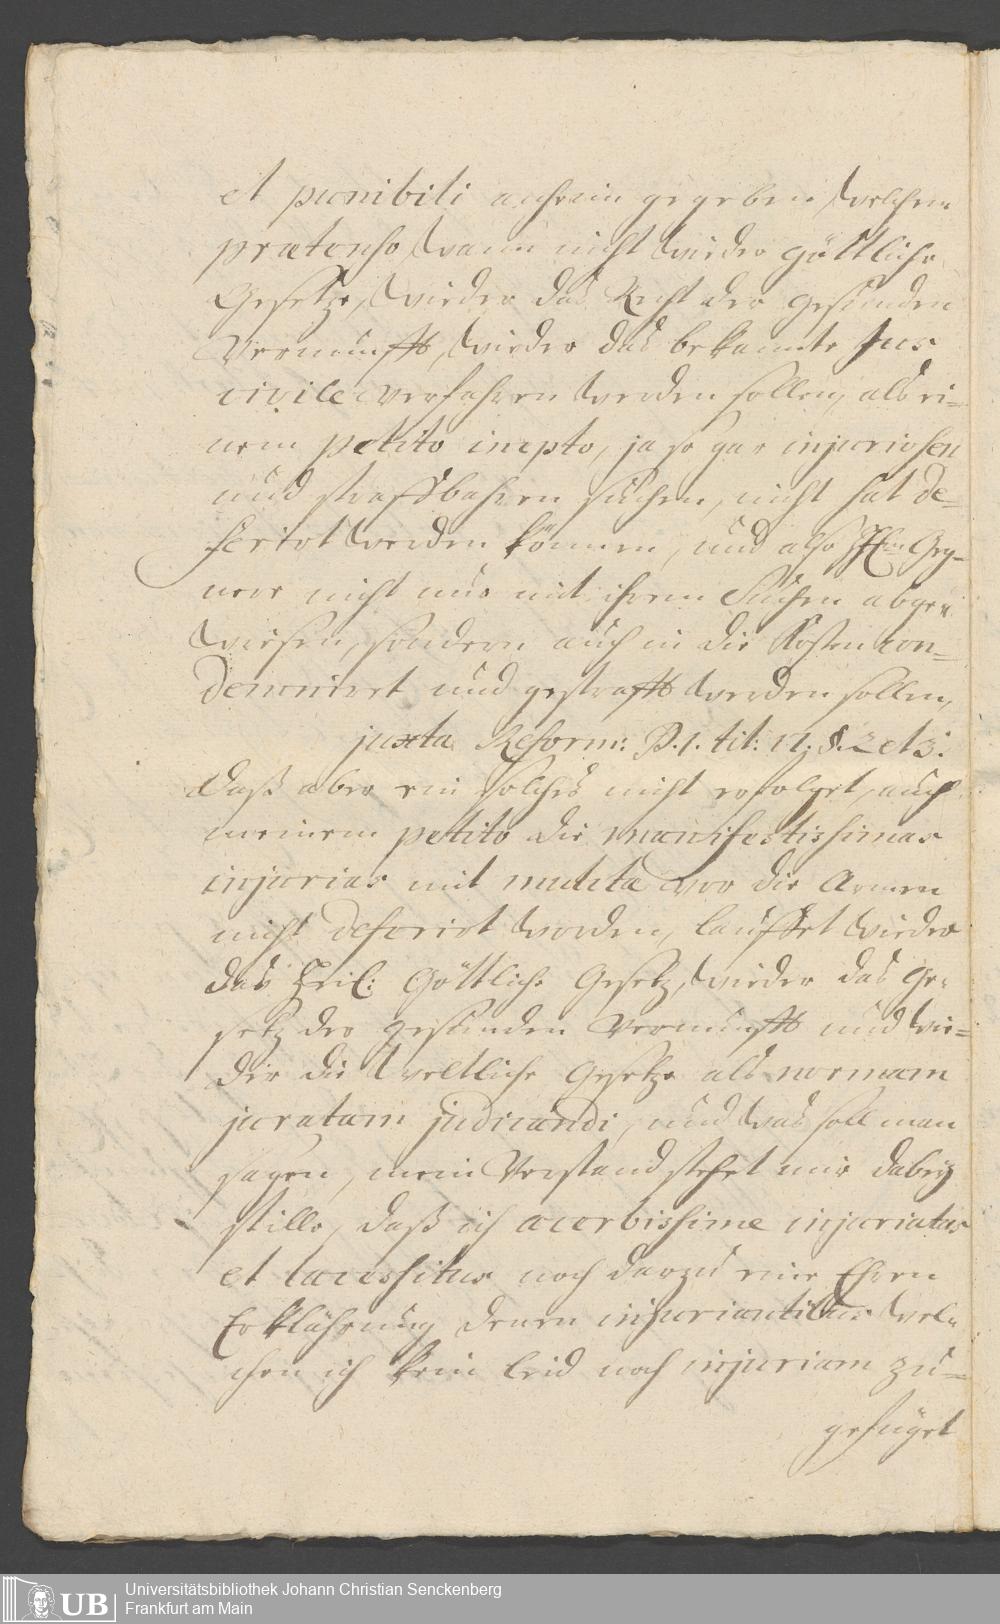 et punibili anheim gegeben, welchem
prætenso, wann nicht wieder göttliche
Gesetze, wieder das Recht der gesunden
Vernunfft, wieder das bekannte Jus
civile verfahren werden sollen, als ei-
nem petito inepto, ja so gar injuriosen
und straffbahren suchen, nicht hat de-
ferirt werden können, und also Geg-
nere nicht nur mit ihrem Suchen abge-
wiesen, sondern auch in die Kosten con-
demniret und gestrafft werden sollen,
juxta Reform: P. 1. tit: 17. §. 2 et 3.
Daß aber ein solches nicht erfolget, auch
meinem petito die manifestissimas
injurias mit mulcta vor die Armen
nicht deferirt worden, lauffet wieder
das Heil: Göttliche Gesetz, wieder das Ge-
setz der gesunden Vernunfft und wie-
der die weltliche Gesetze als normam
juratam judicandi, und was soll man
sagen, mein Verstand stehet mir dabey
stille, daß ich acerbissime injuriatus
et lacessitus noch darzu eine Ehren
Erklährung denen injuriantibus wel-
chen ich kein leid noch injuriam zu-
gefüget
UB Universitätsbibliothek Johann Christian Senckenberg
Frankfurt am Main